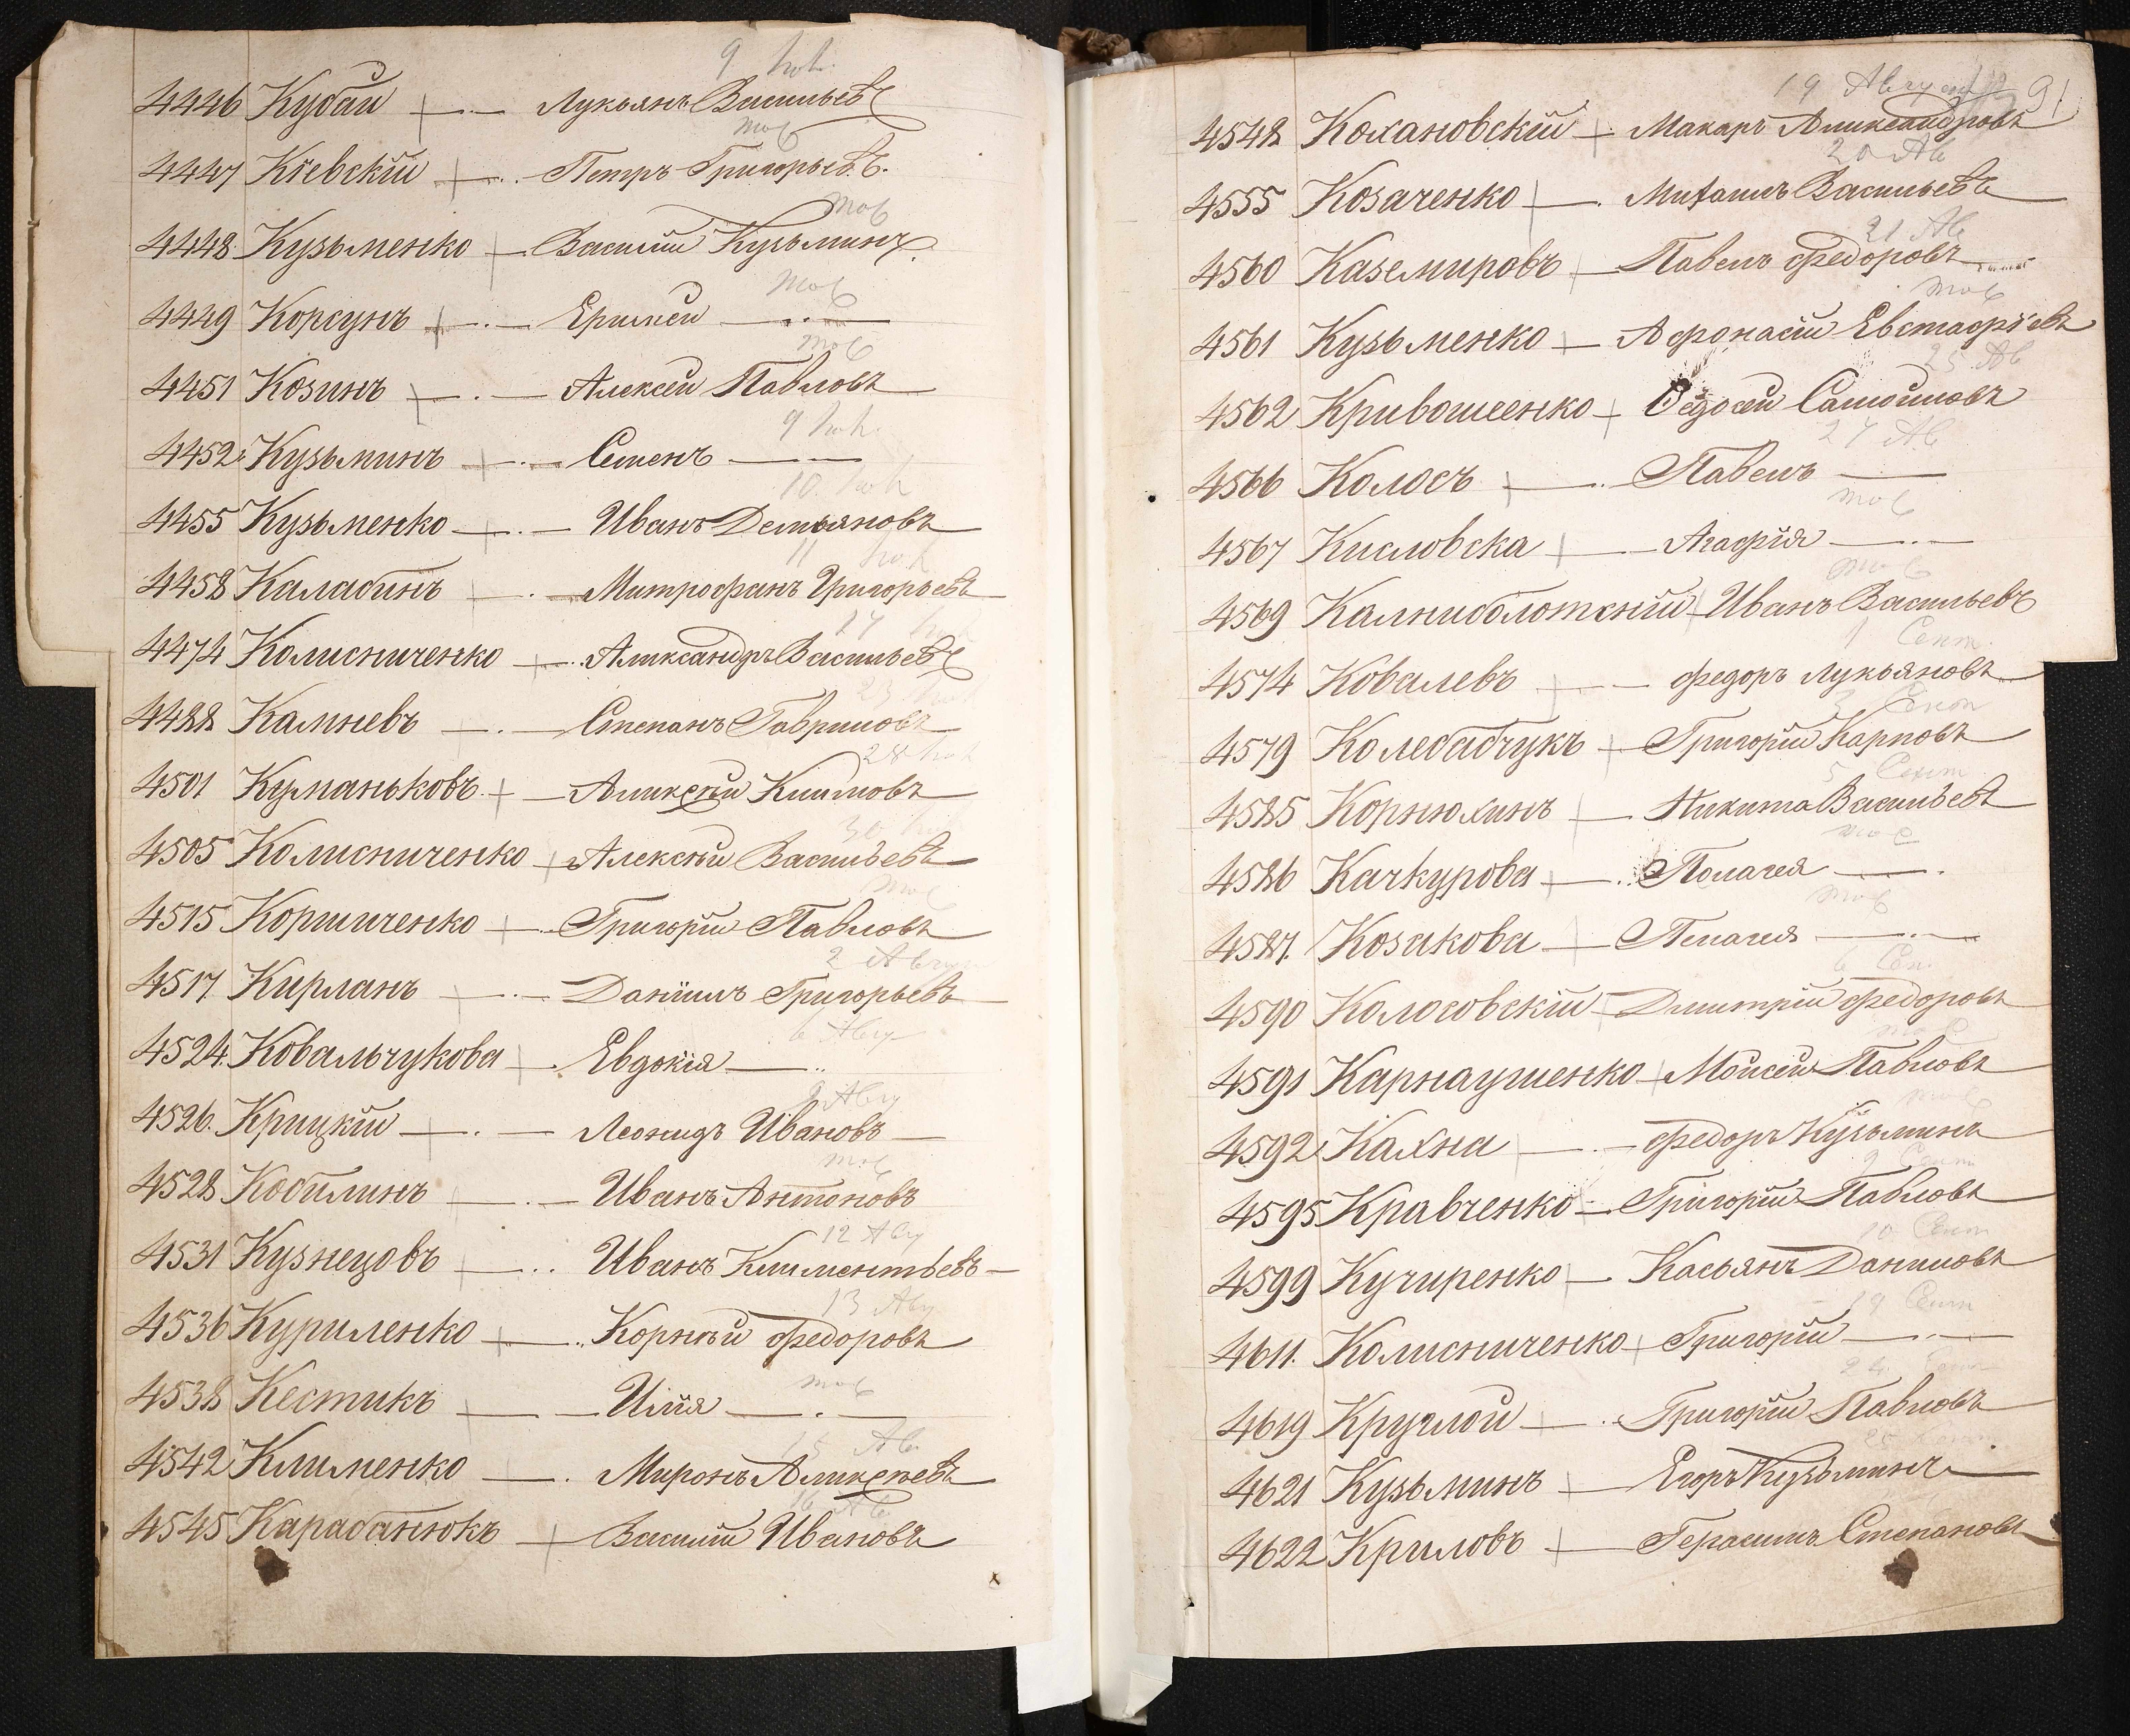 9 Іюл.
4446 Кубай — Лукьянъ Васильевъ
тоб
4447 Кіевскій — Петръ Григорьевъ.
тоб
4448 Кузьменко — Василій Кузьминъ.
тоб
4449 Корсунъ — Еримей —
тоб
4451 Козинъ — Алексей Павловъ
9 Іюл.
4452 Кузьминъ — Семенъ —
10 Іюл
4455 Кузьменко — Иванъ Демьяновъ
11 Іюл
4458 Калабинъ — Митрофанъ Григорьевъ
4474 Колисниченко — Александръ Васильевъ
4488 Камневъ — Степанъ Гавриловъ
28 Іюл
4501 Куманьковъ — Алексѣй Климовъ
30 Іюл
4505 Колисниченко — Алексѣй Васильевъ
тоб
4515 Коршиченко — Григорій Павловъ
2 Август
4517 Кирланъ — Даніилъ Григорьевъ
6 Авгу
4524. Ковальчукова — Евдокія —
9 Авгу
4526. Крицкій — Леонидъ Ивановъ
тоб
4528 Кобилинъ — Иванъ Антоновъ
12 Авгу
4531 Кузнецовъ — Иванъ Климентьевъ
13 Авгу
4536 Куриленко — Корнѣй Федоровъ
тоб
4538 Кестикъ — Илія —
15 Ав.
4542 Клименко — Миронъ Аликсѣевъ
16 Ав.
4545 Карабанюкъ — Василій Ивановъ
91
19 Августа
4548 Кохановскій — Макаръ Александровъ
20 Ав
4555 Козаченко — Михаилъ Васильевъ
21 Ав
4560 Каземировъ — Павелъ Федоровъ
тоб
4561 Кузьменко — Афонасій Евстафіевъ
25 Ав
4562 Кривошеенко — Федосей Самойловъ
27 Ав
4566 Колосъ — Павелъ —
тоб
4567 Кисловска — Агафія —
тоб
4569 Калниболотскій Иванъ Васильевъ
1 Сент.
4574 Ковалевъ — Федоръ Лукьяновъ
3 Сент
4579 Колебабчукъ — Григорій Карповъ
5 Сент
4585 Корнюхинъ — Никита Васильевъ
тоб
4586 Качкурова — Полагея —
тоб
4587. Козакова — Пелагея —
6 Сен.
4590 Колосовскій — Дмитрій Федоровъ
тоб
4591 Карнаушенко — Мойсей Павловъ
тоб
4592 Кахна — Федоръ Кузьминъ
9 Сент
4595 Кравченко — Григорій Павловъ
10 Сент
4599 Кучиренко — Касьянъ Даниловъ
19 Сент
4611. Колисниченко — Григорій —
24 Сент
4619 Круглой — Григорій Павловъ
25
4621 Кузьминъ — Егоръ Кузьминъ
4622 Криловъ — Герасимъ Степановъ